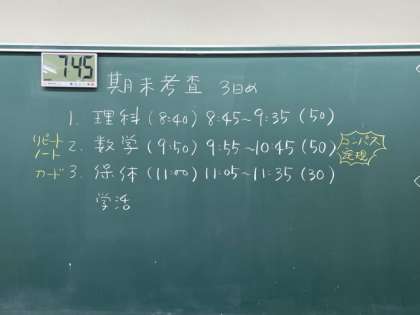 7:45
期末考査 3日め
1. 理科 (8:40) 8:45~9:35 (50)
リピート
ノート
2. 数学 (9:50) 9:55~10:45 (50)
コンパス
定規
カード 3. 保体 (11:00) 11:05~11:35 (30)
学活